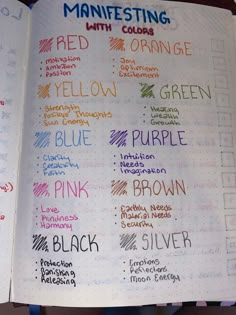 MANIFESTING
WITH COLORS
RED
Motivation
Ambition
Passion
ORANGE
Joy
Optimism
Excitement
YELLOW
Strength
Positive Thoughts
Sun Energy
GREEN
Healing
Wealth
Growth
BLUE
Clarity
Creativity
Faith
PURPLE
Intuition
Needs
Imagination
PINK
Love
Kindness
Harmony
BROWN
Earthly Needs
Material Needs
Security
BLACK
Protection
Banishing
Releasing
SILVER
Emotions
Reflections
Moon Energy